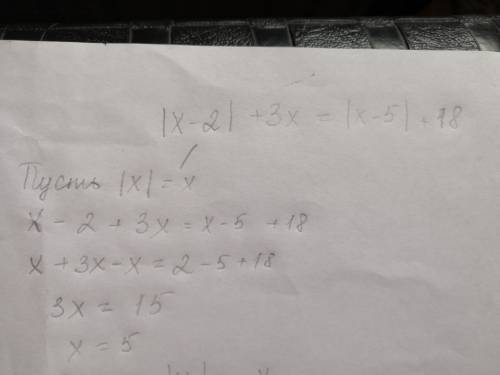 |x-2| +3x = |x-5| +18
Пусть |x| = x
x - 2 + 3x = x - 5 + 18
x + 3x - x = 2 - 5 + 18
3x = 15
x = 5